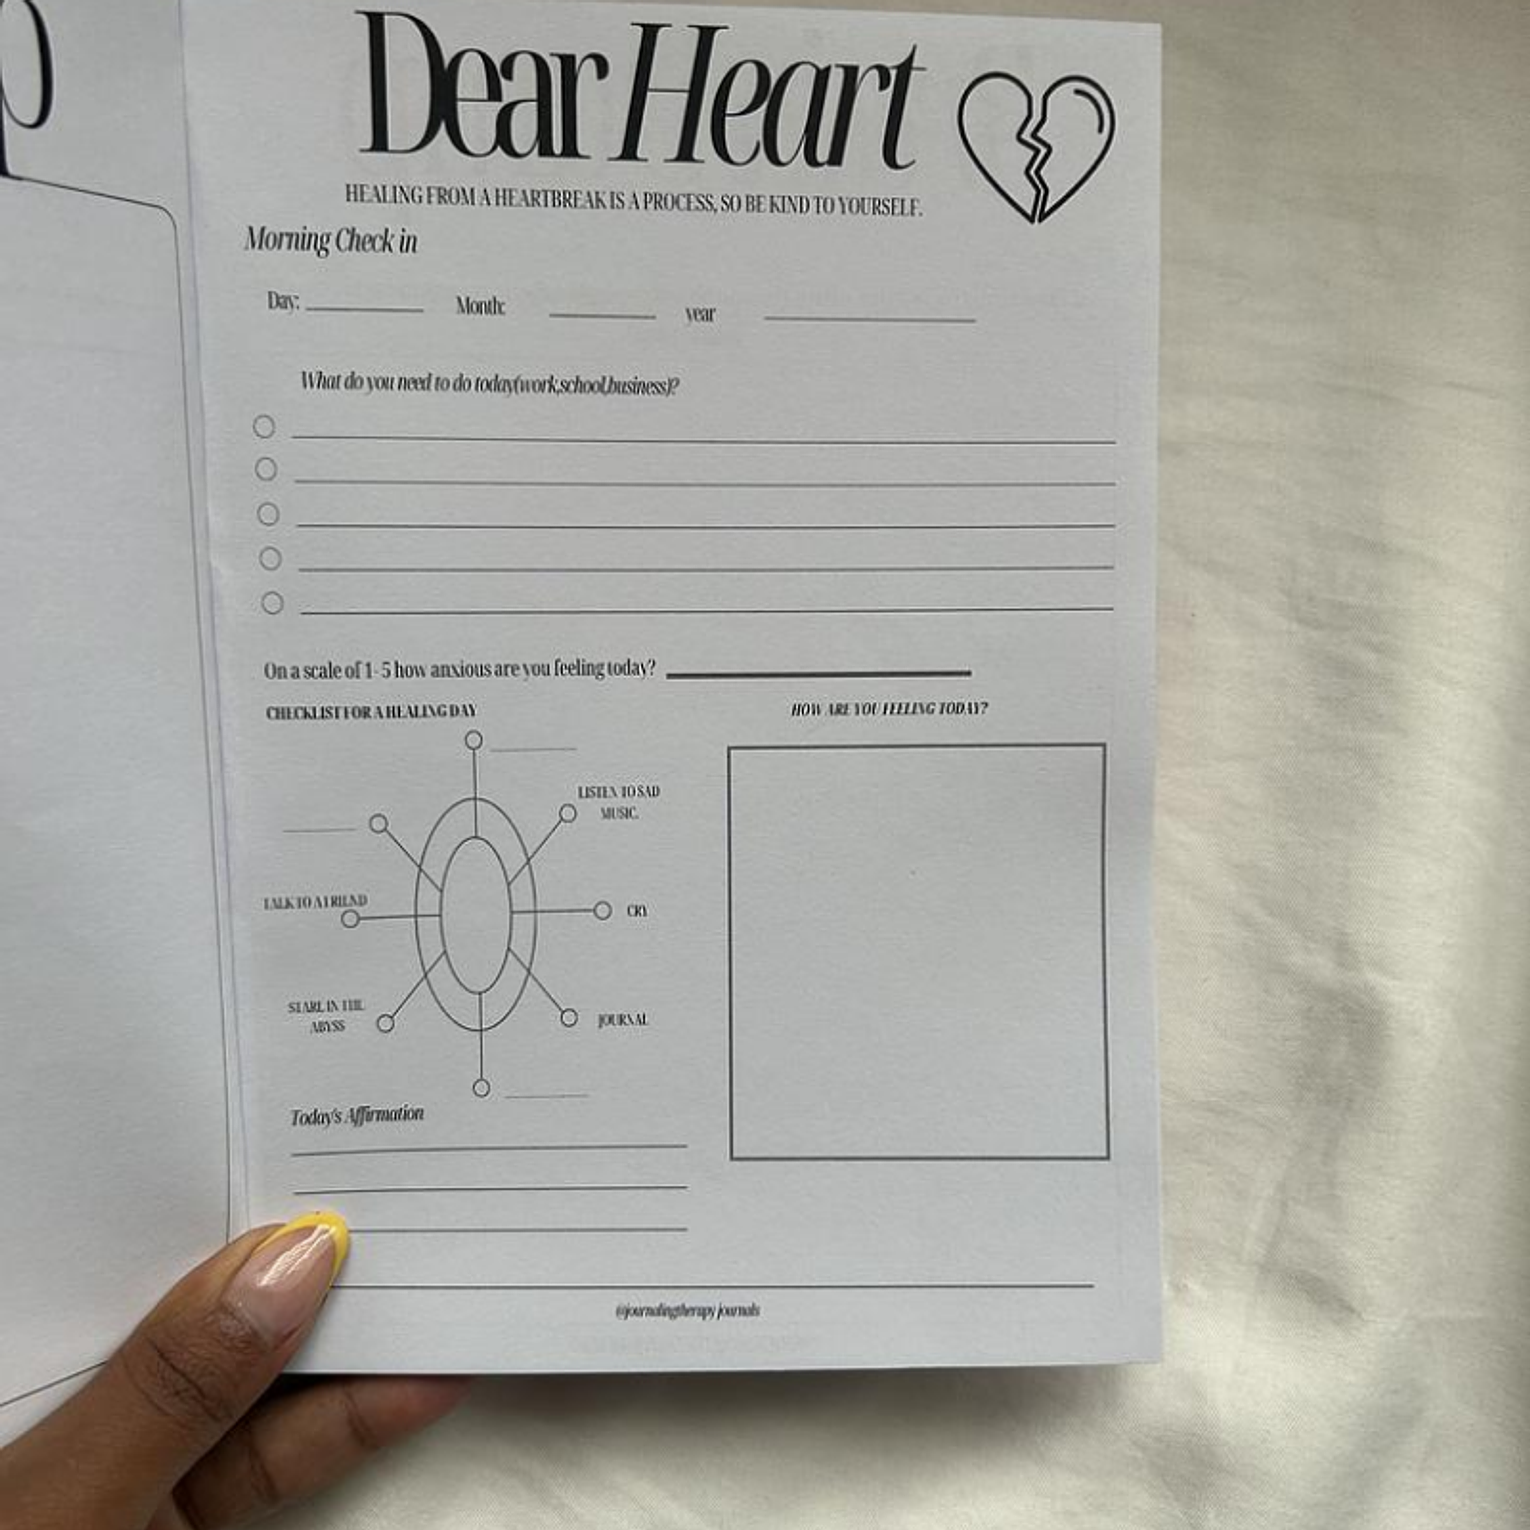 Dear Heart
HEALING FROM A HEARTBREAK IS A PROCESS, SO BE KIND TO YOURSELF.
Morning Check in
Day: Month: year
What do you need to do today(work,school,business)?
On a scale of 1-5 how anxious are you feeling today?
CHECKLIST FOR A HEALING DAY
HOW ARE YOU FEELING TODAY?
LISTEN TO SAD
MUSIC.
TALK TO A FRIEND
CRY
STARE IN THE
ABYSS
JOURNAL
Today's Affirmation
@journalingtherapy journals